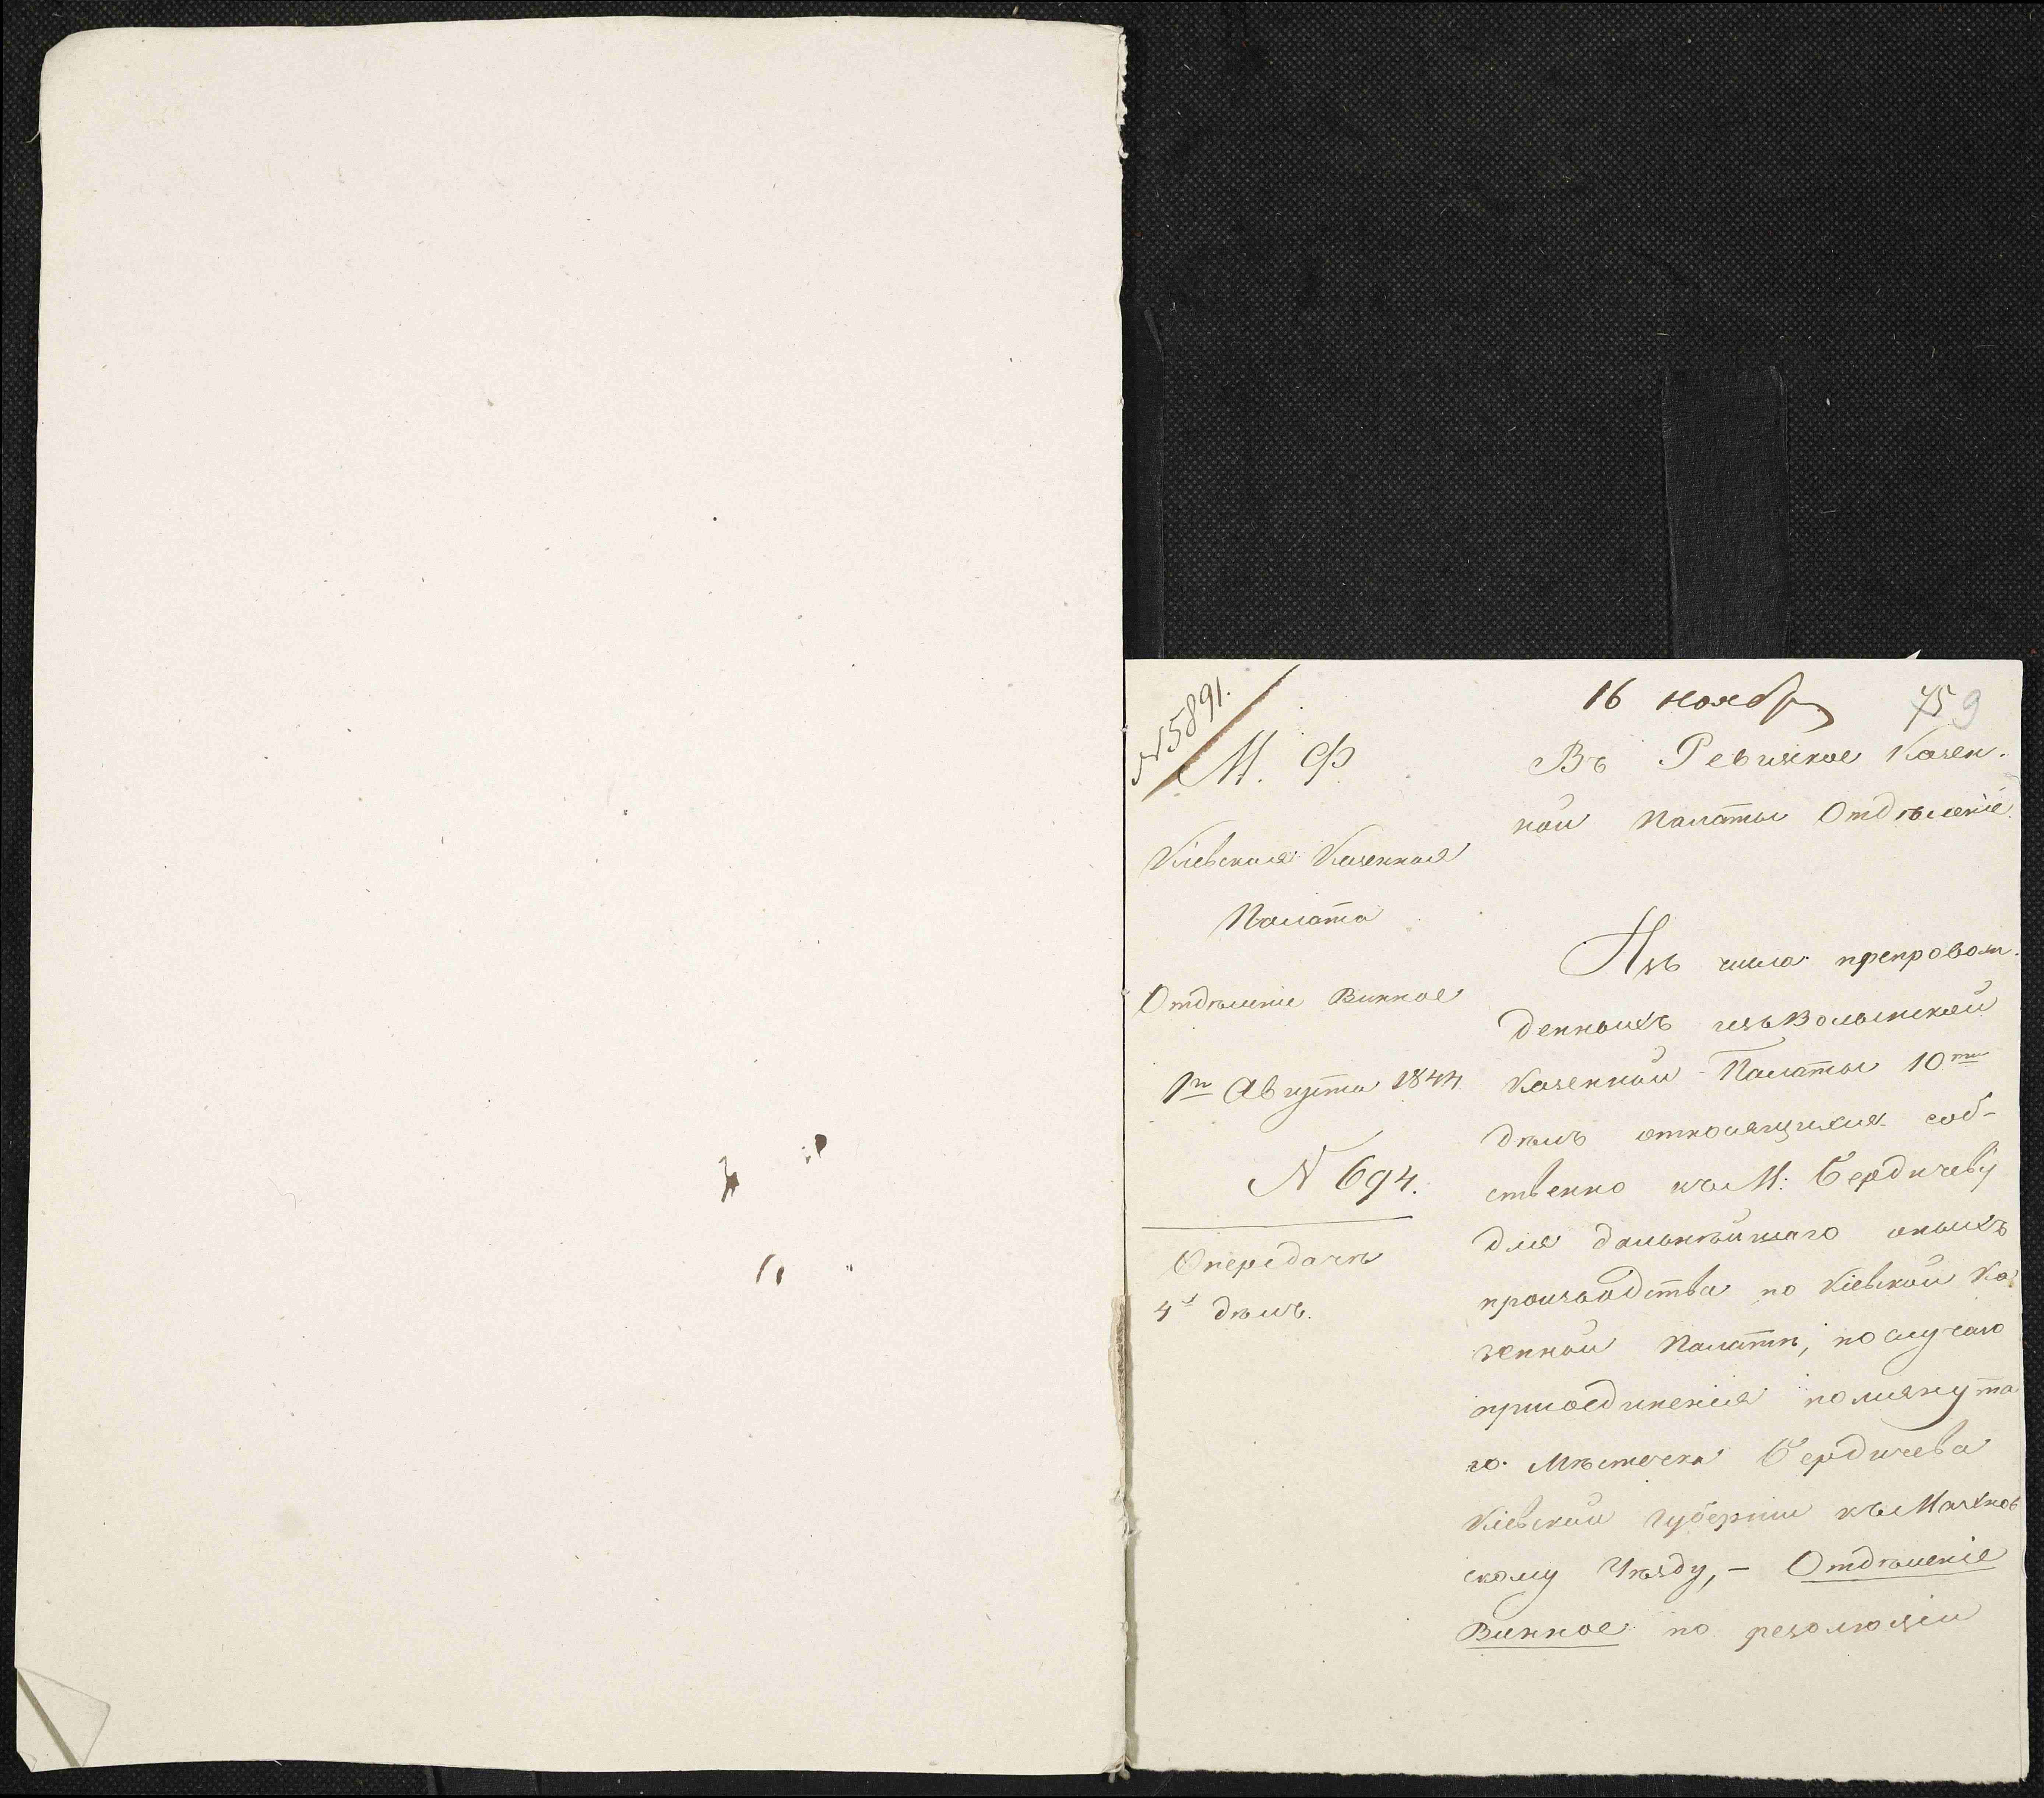 № 5891.
16 ноября
75 9
М. Ф
Кіевская Казенная
Палата
Отдѣленіе Винное
1го Августа 1844
№ 694.
О передачѣ
4х дѣлъ.
Въ Ревизское Казен-
ной Палаты Отдѣленіе.
Изъ числа препровож-
денныхъ изъ Волынской
Казенной Палаты 10ти
дѣлъ относящихся соб-
ственно къ М: Бердичеву
для дальнѣйшаго оныхъ
производства по Кіевской Ка
зенной Палатѣ, по случаю
присоединенія помянута
го Мѣстечка Бердичева
Кіевской Губерніи къ Махнов
скому Уѣзду, – Отдѣленіе
Винное по резолюціи